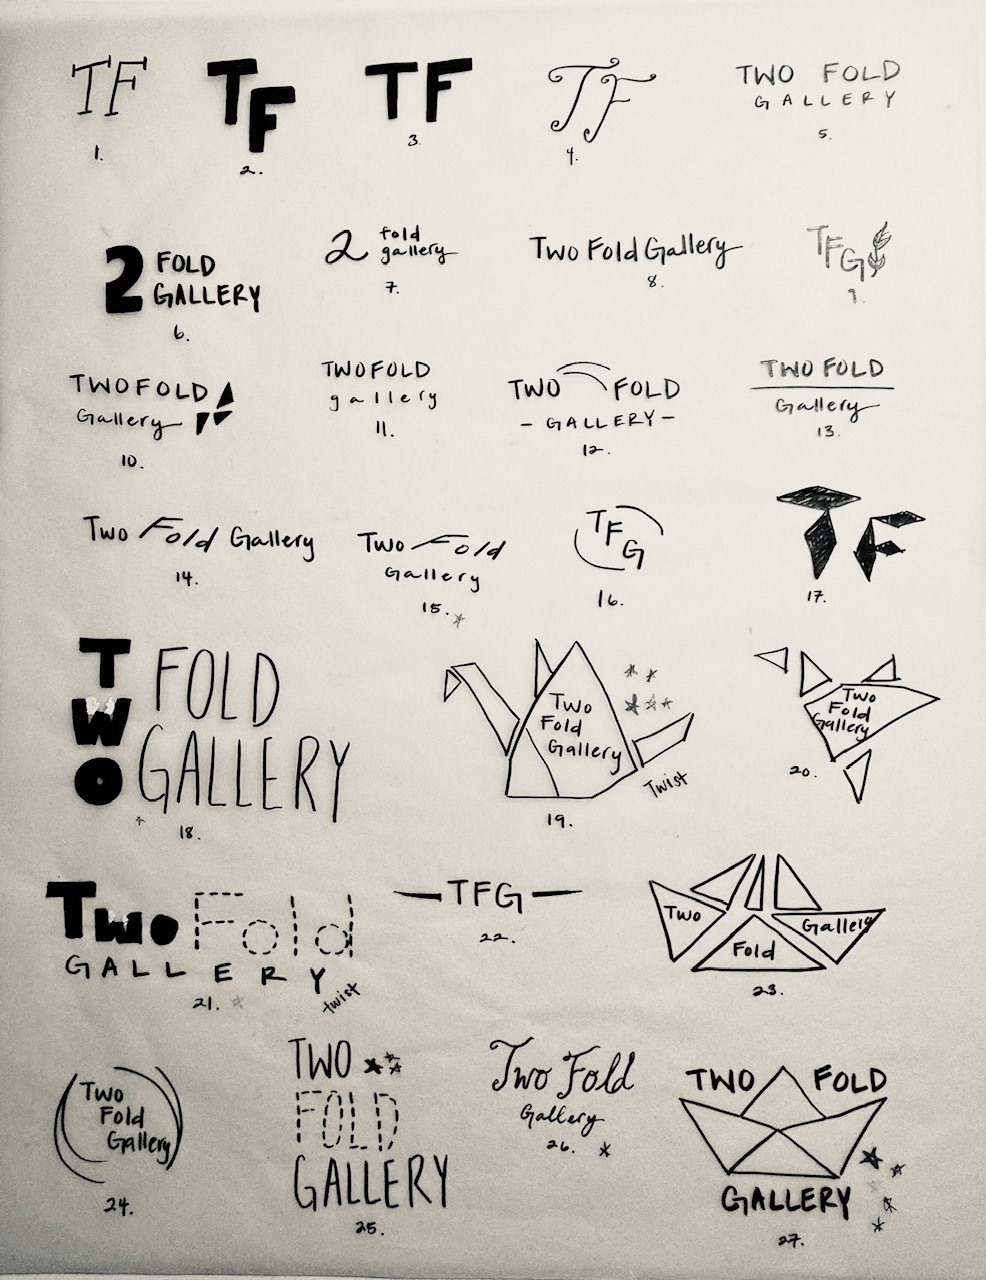 TF
1.
TF
2.
TF
3.
TF
4.
TWO FOLD
GALLERY
5.
2 FOLD
GALLERY
6.
2 fold
gallery
7.
Two Fold Gallery
8.
TFG
9.
TWO FOLD
Gallery
10.
TWO FOLD
gallery
11.
TWO FOLD
- GALLERY -
12.
TWO FOLD
Gallery
13.
Two Fold Gallery
14.
Two Fold
Gallery
15.
TFG
16.
TF
17.
TWO
FOLD
GALLERY
18.
Two
Fold
Gallery
Twist
19.
Two
Fold
Gallery
20.
Two Fold
GALLERY
twist
21.
TFG
22.
Two
Fold
Gallery
23.
Two
Fold
Gallery
24.
TWO
FOLD
GALLERY
25.
Two Fold
Gallery
26.
TWO FOLD
GALLERY
27.